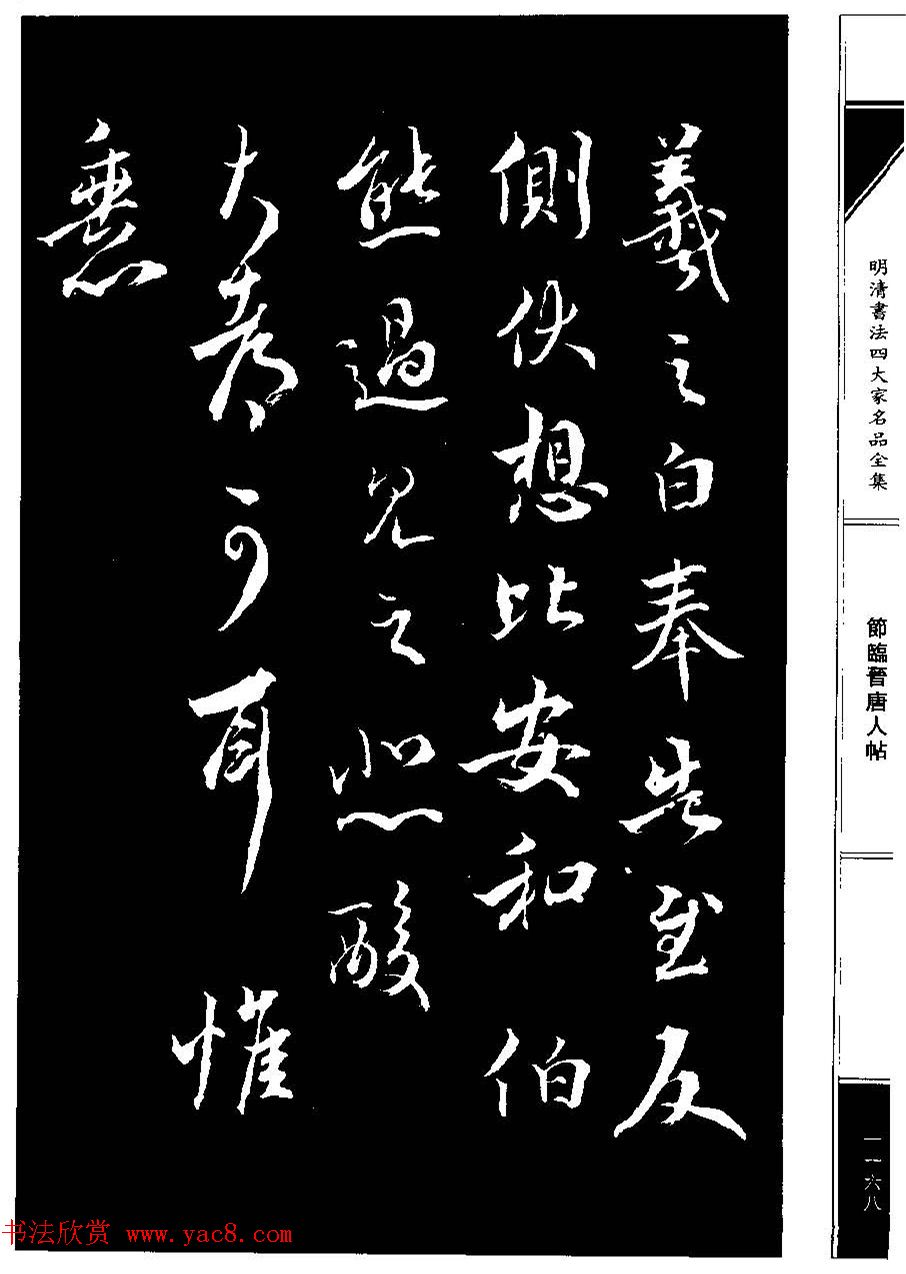 羲之白奉告至反
側伏想比安和伯
熊過見之悲酸
大都可耳
明清書法四大家名品全集
節臨晉唐人帖
一一六八
书法欣赏 www.yac8.com